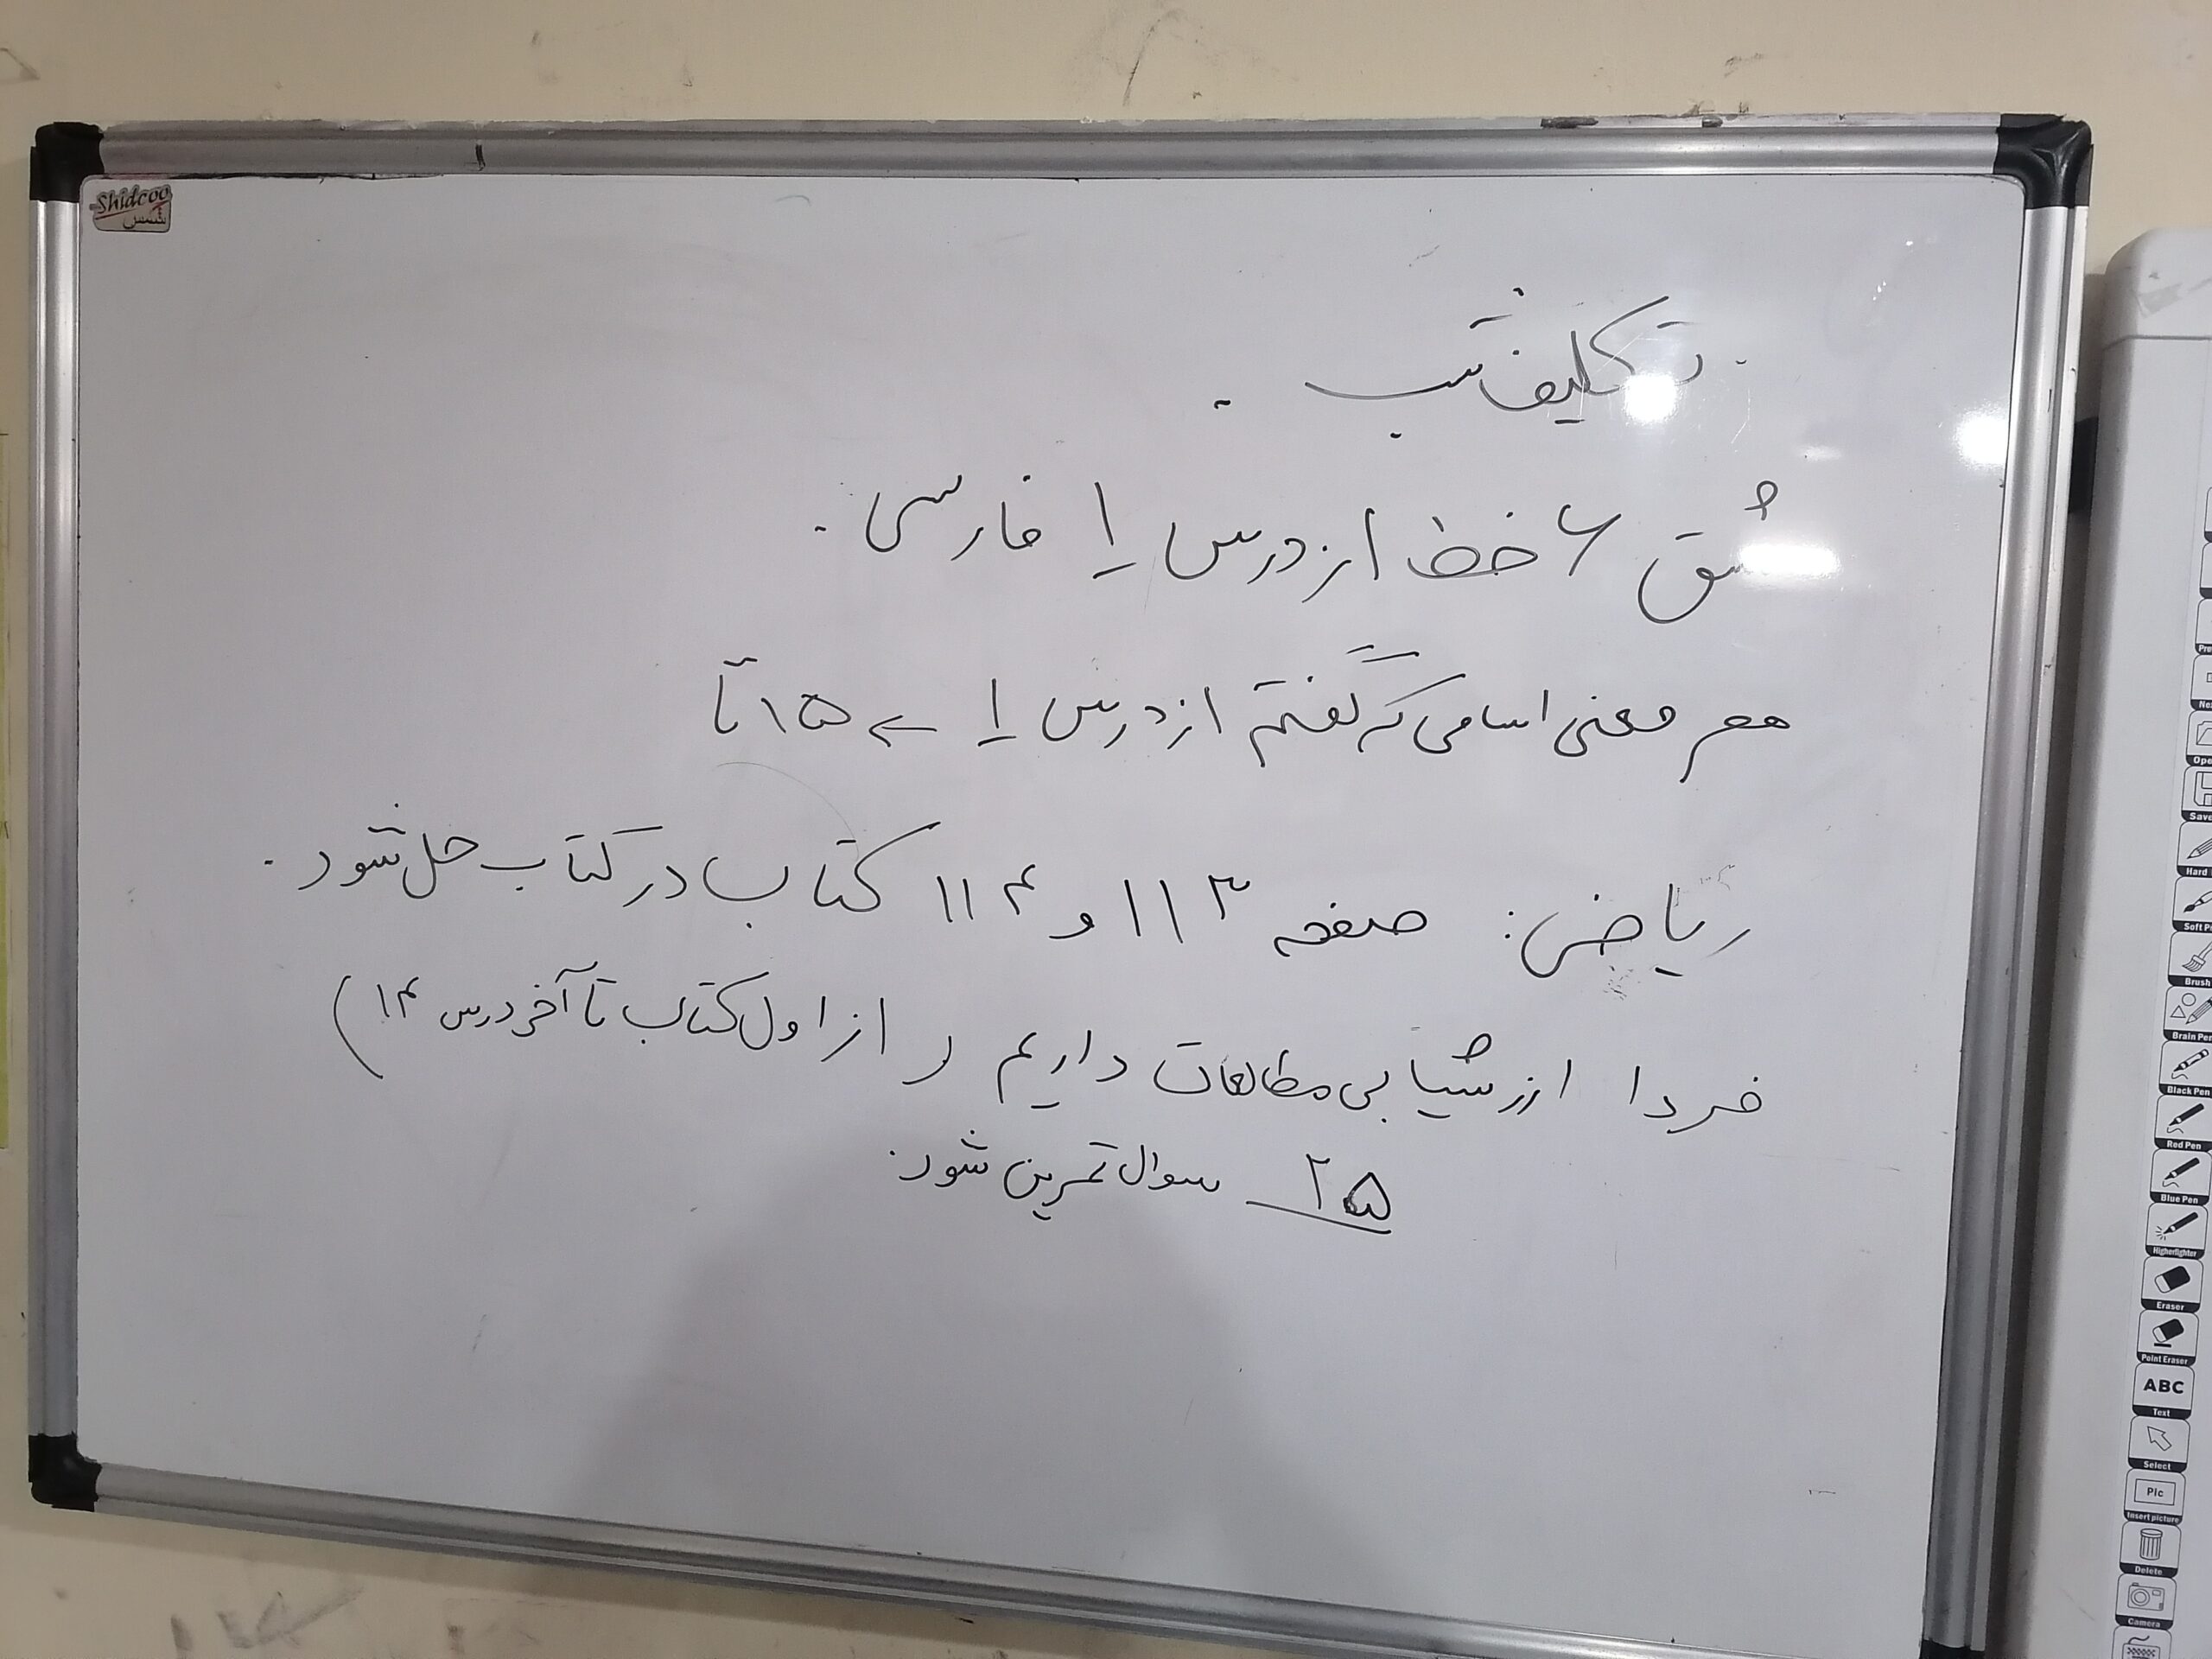 Shidcoo
شمس
تکلیف شب .
مشق ۶ خط از درس ۱ فارسی .
هم معنی اسامی که گفتم از درس ۱ ← ۱۵ تا
ریاضی: صفحه ۱۱۳ و ۱۱۴ کتاب در کتاب حل شود .
فردا ارزشیابی مطالعات داریم ( از اول کتاب تا آخر درس ۱۴ )
۲۵ سوال تمرین شود .
Save
Hard
Brush
Brain Pen
Black Pen
Red Pen
Blue Pen
Higherlighter
Eraser
Point Eraser
ABC
Text
Select
Pic
Insert picture
Delete
Camera